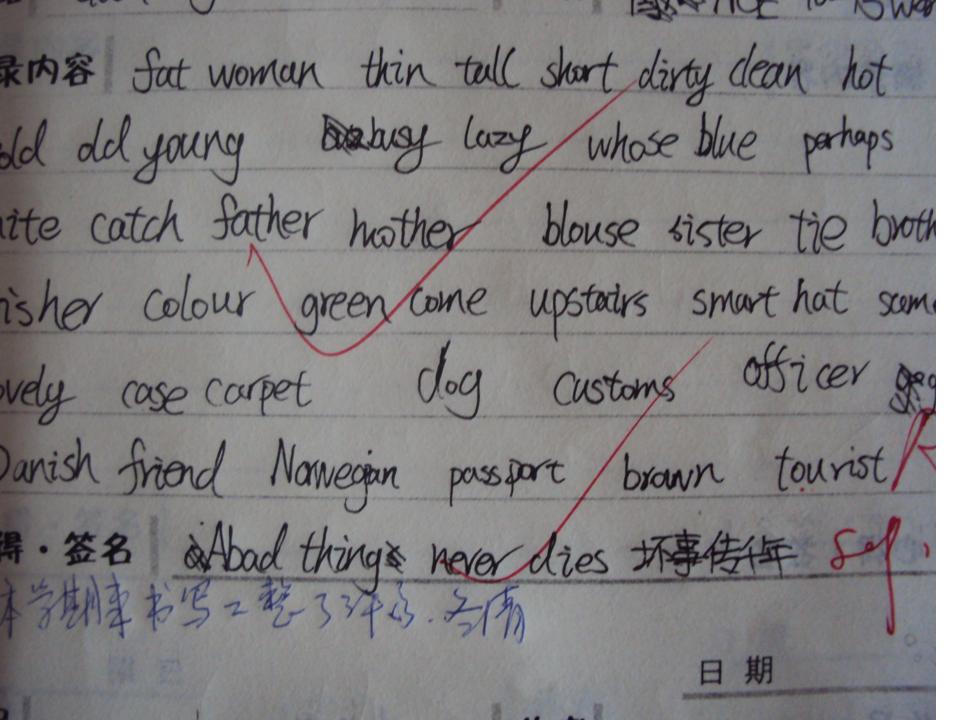 录内容 fat woman thin tall short dirty clean hot
old old young busy lazy whose blue perhaps
catch father mother blouse sister tie broth
isher colour green come upstairs smart hat same
ovely case carpet dog customs officer
Danish friend Norwegian passport brown tourist
得·签名 A bad thing never dies 坏事传千年 Sep.
本学期来书写工整了许多.
日期